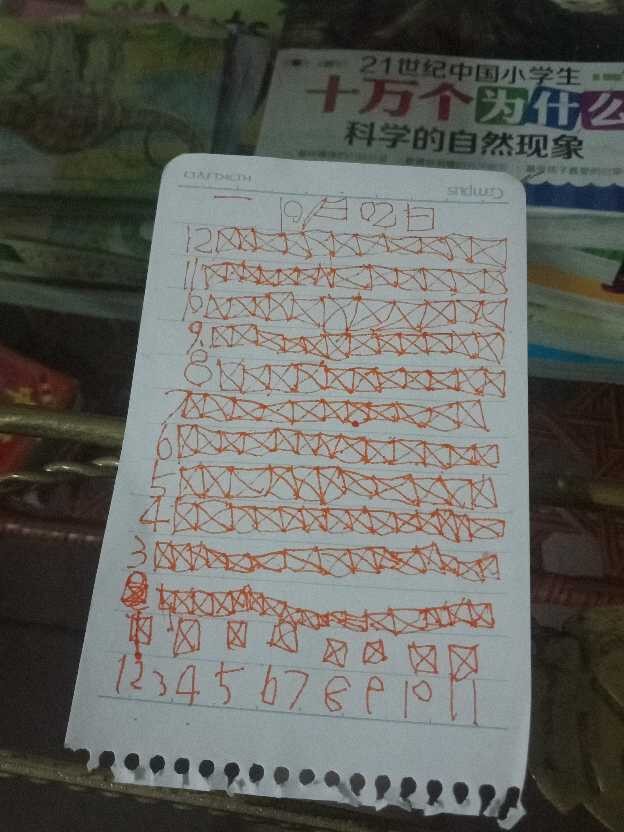 21世纪中国小学生
十万个为什么
科学的自然现象
Campus
一 10月02日
12
11
10
9
8
7
6
5
4
3
1 2 3 4 5 6 7 8 9 10 11